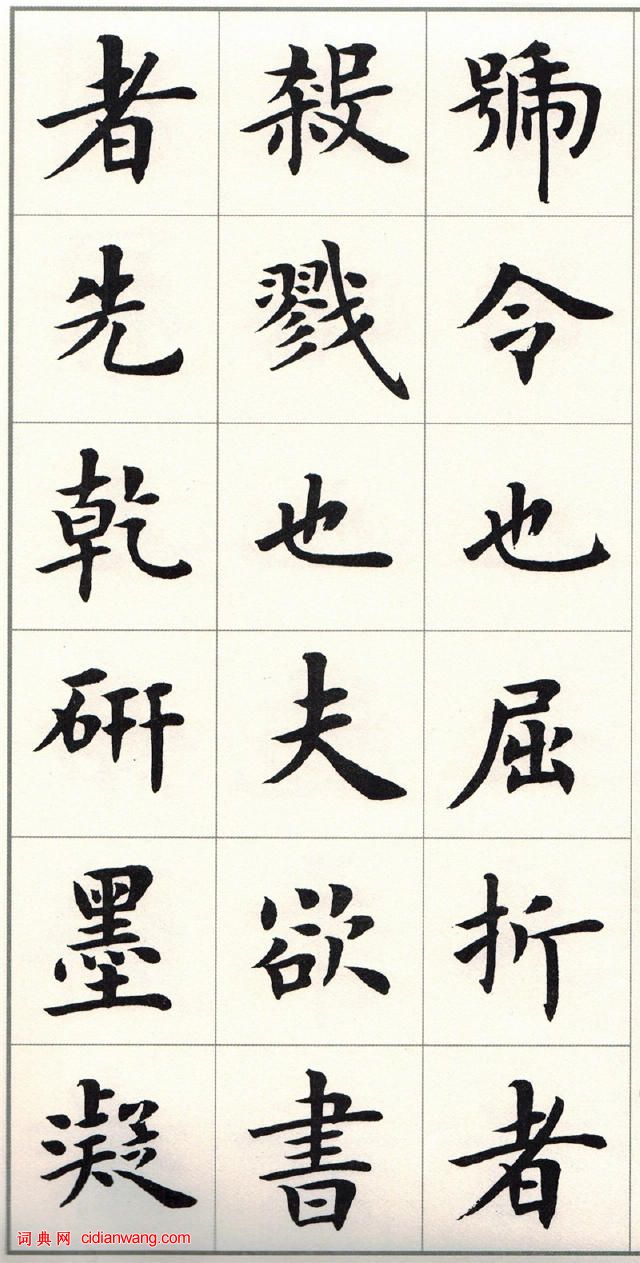 號令也屈折者
殺戮也夫欲書
者先乾研墨凝
词典网 cidianwang.com